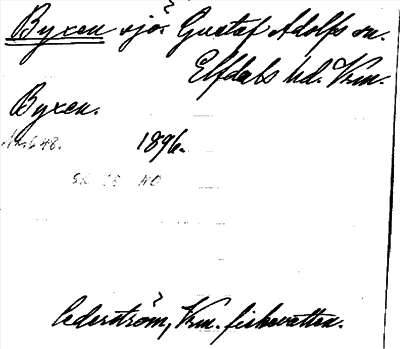 Byxen sjö. Gustaf Adolfs sn.
Elfdals hd. Vrm.
Byxen.
1896.
Cederström, Vrm. fiskevatten.